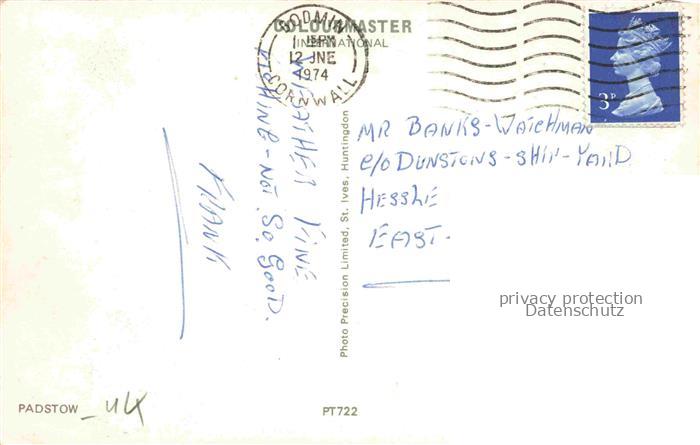 COLOURMASTER
INTERNATIONAL
BODMIN
1 15PM
12 JNE
1974
CORNWALL
3P
WEATHER FINE
FISHING - NOT. SO. GOOD.
FRANK
Photo Precision Limited, St. Ives, Huntingdon
MR BANKS - WATCHMAN
C/O DUNSTONS - SHIP - YARD
HESSLE
EAST.
privacy protection
Datenschutz
PADSTOW
PT722